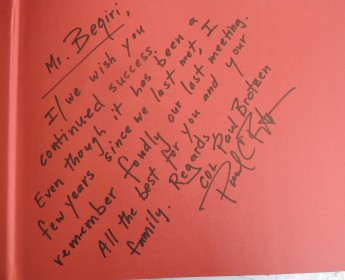 Mr. Beqiri,
I/we wish you
continued success.
Even though it has been a
few years since we last met, I
remember fondly our last meeting.
All the best for you and your
family.
Regards
COL Paul Brotzen